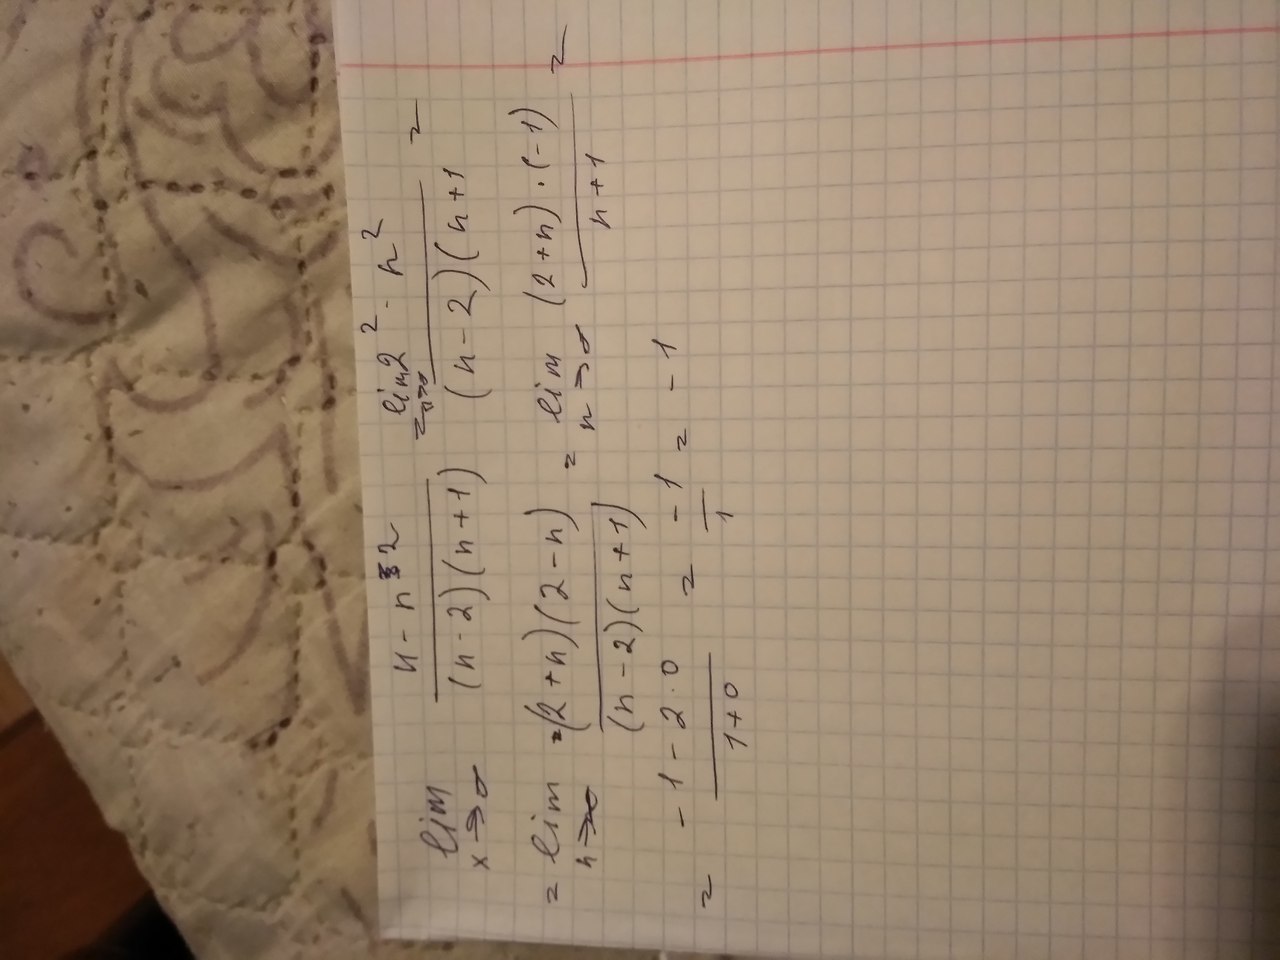 lim x→∞ (4 - n²) / ((n-2)(n+1)) = lim n→∞ (2² - n²) / ((n-2)(n+1 =
= lim n→∞ ((2+n)(2-n)) / ((n-2)(n+1)) = lim n→∞ ((2+n)·(-1)) / (n+1) =
= (-1 - 2·0) / (1+0) = -1/1 = -1